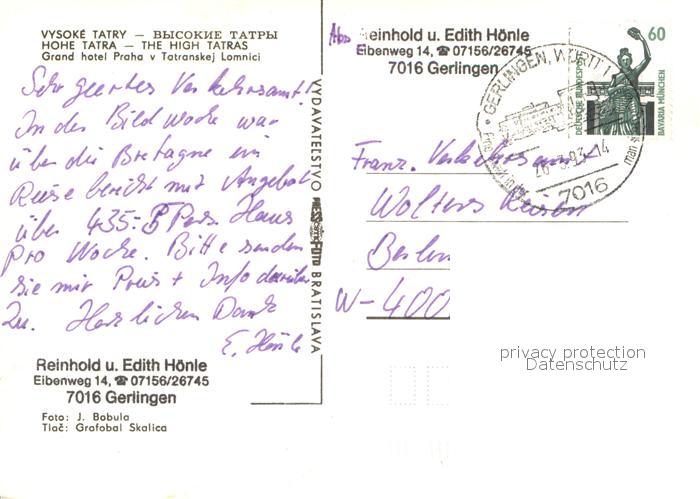 VYSOKÉ TATRY — ВЫСОКИЕ ТАТРЫ
HOHE TATRA — THE HIGH TATRAS
Grand hotel Praha v Tatranskej Lomnici
Sehr geertes Verkehrsamt!
In der Bild woche war
über die Bretagne ein
Reise bericht mit Angebot
über 435.- 5 Pers. Haus
pro Woche. Bitte senden
sie mir Preis + Info darüber
zu. Herzlichen Dank
E. Hönle
Reinhold u. Edith Hönle
Eibenweg 14, ☎ 07156/26745
7016 Gerlingen
Foto: J. Bobula
Tlač: Grafobal Skalica
VYDAVATEĽSTVO
FOTO BRATISLAVA
Abs
Reinhold u. Edith Hönle
Eibenweg 14, ☎ 07156/26745
7016 Gerlingen
60
DEUTSCHE BUNDESPOST
BAVARIA MÜNCHEN
GERLINGEN, WÜRTT 1
93.-14
7016
Franz. Verkehrsamt
Wolters Reisen
Berlin
W-400
privacy protection
Datenschutz